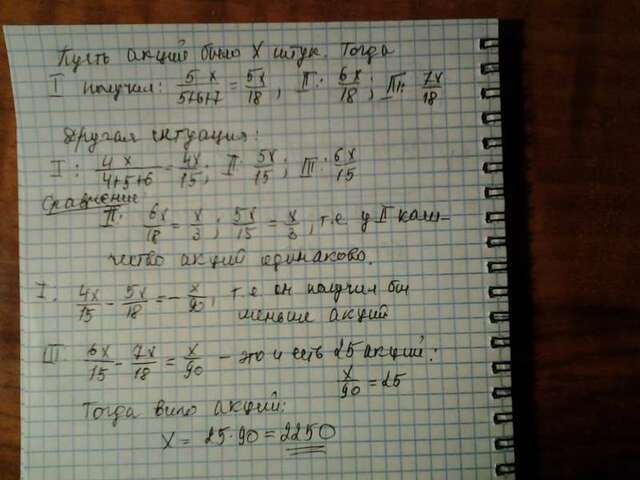 Пусть акций было X штук. Тогда
I получил: 5x/5+6+7 = 5x/18; II: 6x/18; III: 7x/18
Другая ситуация:
I: 4x/4+5+6 = 4x/15; II: 5x/15; III: 6x/15
Сравнение
II: 6x/18 = x/3; 5x/15 = x/3, т.е у II коли-
чество акций одинаково.
I: 4x/15 - 5x/18 = -x/90, т.е он получил бы
меньше акций
III: 6x/15 - 7x/18 = x/90 - это и есть 25 акций:
x/90 = 25
Тогда было акций:
X = 25·90 = 2250